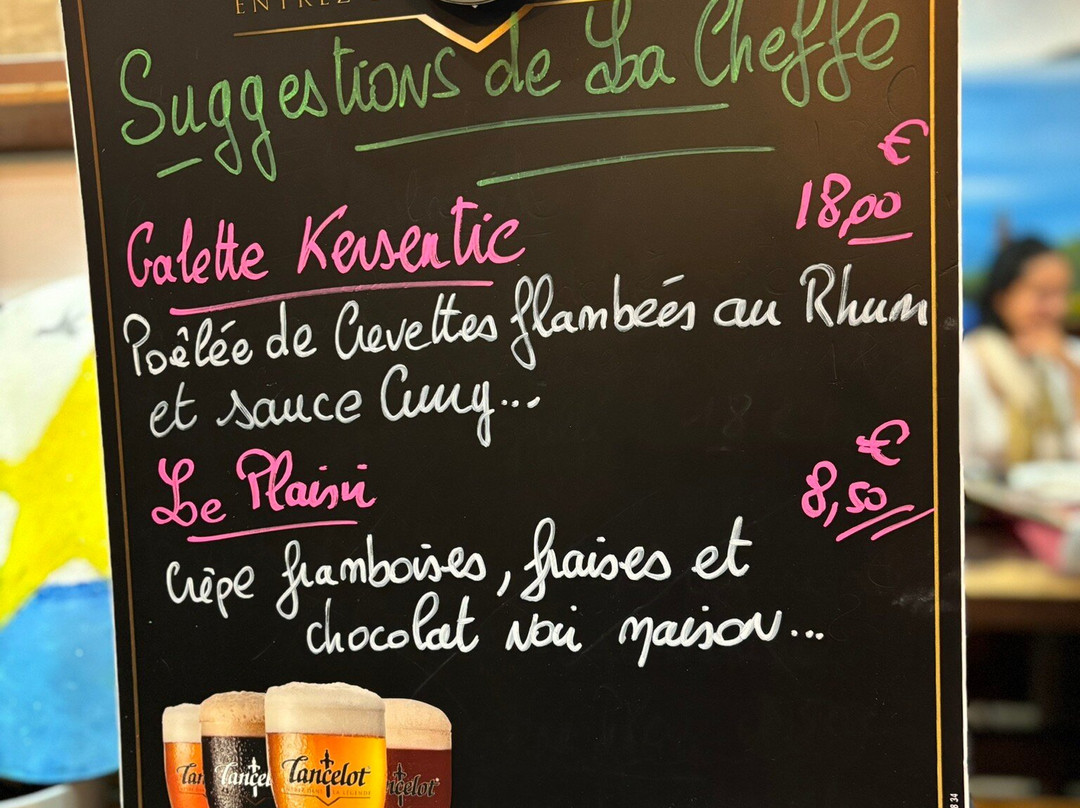 ENTREZ
Suggestions de La Cheffe
Galette Kersentic
18,00 €
Poêlée de Crevettes flambées au Rhum
et sauce Curry...
Le Plaisir
8,50 €
Crêpe framboises, fraises et
chocolat Noir maison...
Lancelot